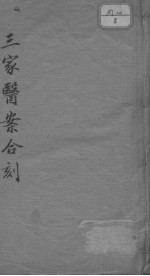 三家醫案合刻